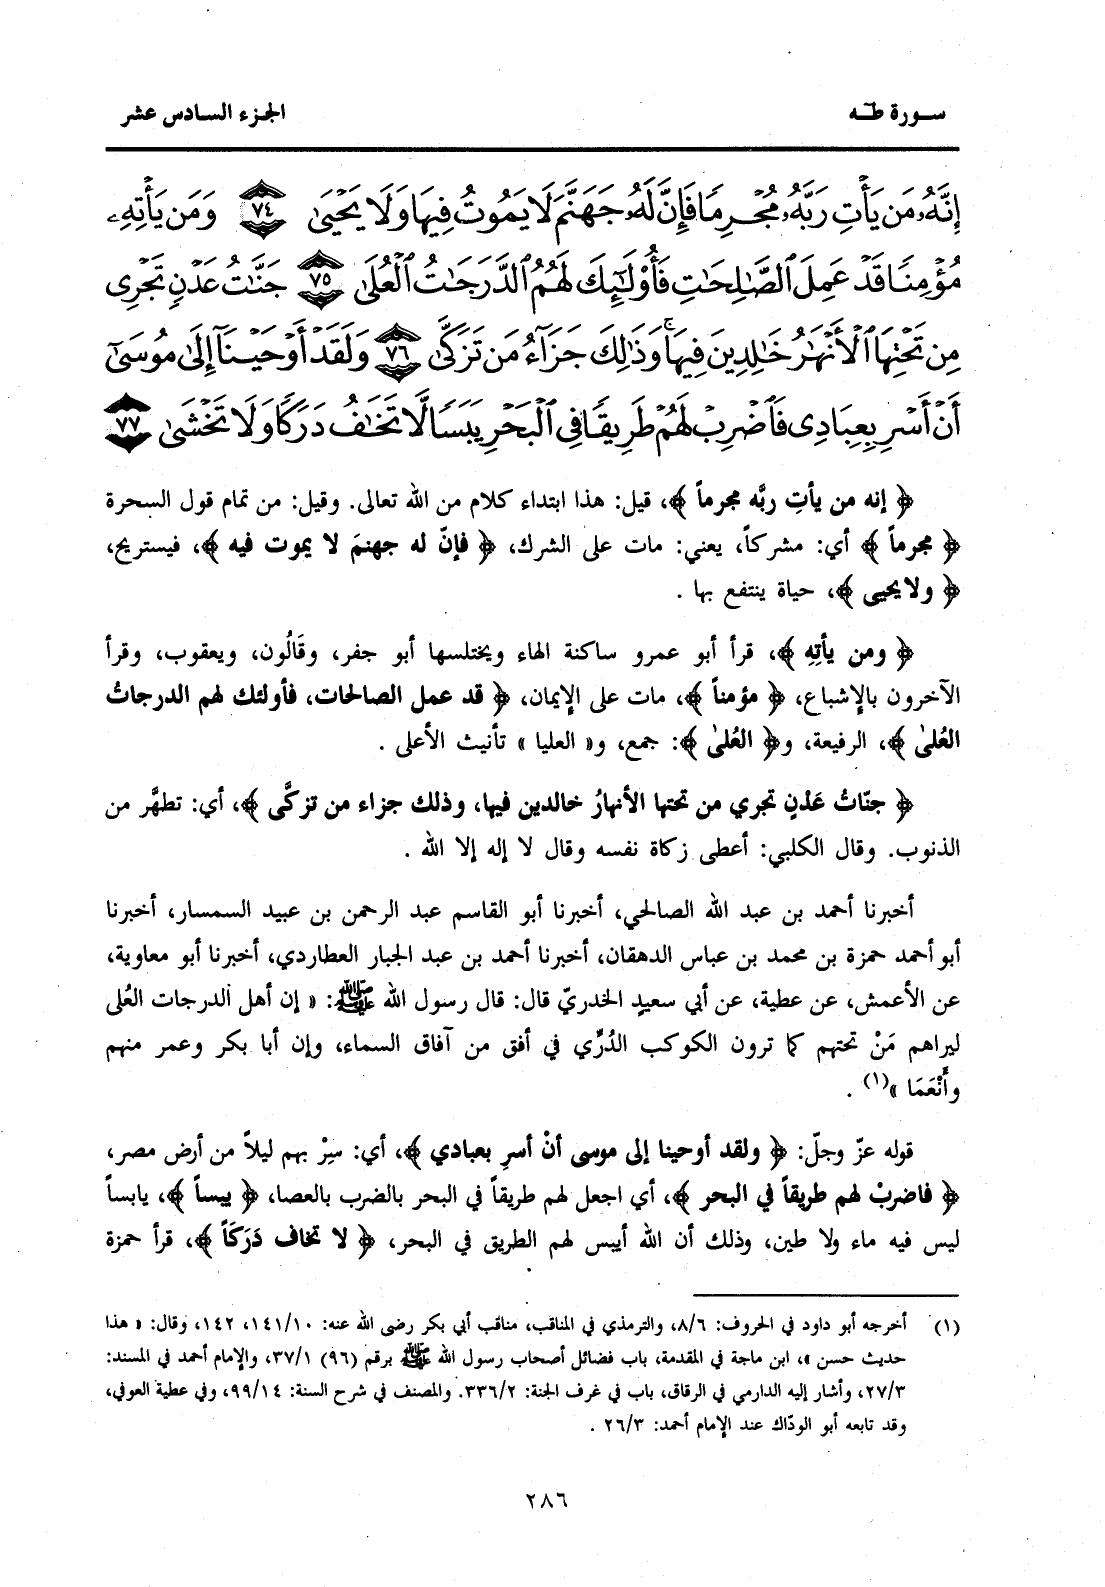 سورة طه
الجزء السادس عشر
إِنَّهُۥ مَن يَأْتِ رَبَّهُۥ مُجْرِمًا فَإِنَّ لَهُۥ جَهَنَّمَ لَا يَمُوتُ فِيهَا وَلَا يَحْيَىٰ ٧٤ وَمَن يَأْتِهِۦ
مُؤْمِنًا قَدْ عَمِلَ ٱلصَّـٰلِحَـٰتِ فَأُو۟لَـٰٓئِكَ لَهُمُ ٱلدَّرَجَـٰتُ ٱلْعُلَىٰ ٧٥ جَنَّـٰتُ عَدْنٍ تَجْرِى
مِن تَحْتِهَا ٱلْأَنْهَـٰرُ خَـٰلِدِينَ فِيهَا ۚ وَذَٰلِكَ جَزَآءُ مَن تَزَكَّىٰ ٧٦ وَلَقَدْ أَوْحَيْنَآ إِلَىٰ مُوسَىٰٓ
أَنْ أَسْرِ بِعِبَادِى فَٱضْرِبْ لَهُمْ طَرِيقًا فِى ٱلْبَحْرِ يَبَسًا لَّا تَخَـٰفُ دَرَكًا وَلَا تَخْشَىٰ ٧٧
﴿ إنه من يأتِ ربَّه مجرماً ﴾، قيل: هذا ابتداء كلام من الله تعالى. وقيل: من تمام قول السحرة
﴿ مجرماً ﴾ أي: مشركاً، يعني: مات على الشرك، ﴿ فإنّ له جهنمَ لا يموت فيه ﴾، فيستريح،
﴿ ولا يحيى ﴾، حياة ينتفع بها .
﴿ ومن يأتِهِ ﴾، قرأ أبو عمرو ساكنة الهاء ويختلسها أبو جفر، وقَالُون، ويعقوب، وقرأ
الآخرون بالإشباع، ﴿ مؤمناً ﴾، مات على الإيمان، ﴿ قد عمل الصالحات، فأولئك لهم الدرجاتُ
العُلىٰ ﴾، الرفيعة، و﴿ العُلىٰ ﴾: جمع، و« العليا » تأنيث الأعلى .
﴿ جنّاتُ عَدْنٍ تجري من تحتها الأنهارُ خالدين فيها، وذلك جزاء من تزكَّى ﴾، أي: تطهَّر من
الذنوب. وقال الكلبي: أعطى زكاة نفسه وقال لا إله إلا الله .
أخبرنا أحمد بن عبد الله الصالحي، أخبرنا أبو القاسم عبد الرحمن بن عبيد السمسار، أخبرنا
أبو أحمد حمزة بن محمد بن عباس الدهقان، أخبرنا أحمد بن عبد الجبار العطاردي، أخبرنا أبو معاوية،
عن الأعمش، عن عطية، عن أبي سعيدٍ الخدريّ قال: قال رسول الله ﷺ: « إن أهل الدرجات العُلى
ليراهم مَنْ تحتهم كما ترون الكوكب الدُرِّي في أفق من آفاق السماء، وإن أبا بكر وعمر منهم
وأَنْعَمَا »(١) .
قوله عزّ وجلّ: ﴿ ولقد أوحينا إلى موسى أنْ أسرِ بعبادي ﴾، أي: سِرْ بهم ليلاً من أرض مصر،
﴿ فاضربْ لهم طريقاً في البحر ﴾، أي اجعل لهم طريقاً في البحر بالضرب بالعصا، ﴿ يبساً ﴾، يابساً
ليس فيه ماء ولا طين، وذلك أن الله أيبس لهم الطريق في البحر، ﴿ لا تخاف دَرَكَاً ﴾، قرأ حمزة
(١) أخرجه أبو داود في الحروف: ٨/٦، والترمذي في المناقب، مناقب أبي بكر رضى الله عنه: ١٤١/١٠، ١٤٢، وقال: « هذا
حديث حسن »، ابن ماجة في المقدمة، باب فضائل أصحاب رسول الله ﷺ برقم (٩٦) ٣٧/١، والإمام أحمد في المسند:
٢٧/٣، وأشار إليه الدارمي في الرقاق، باب في غرف الجنة: ٣٣٦/٢. والمصنف في شرح السنة: ٩٩/١٤، وفي عطية العوفي،
وقد تابعه أبو الودّاك عند الإمام أحمد: ٢٦/٣ .
٢٨٦